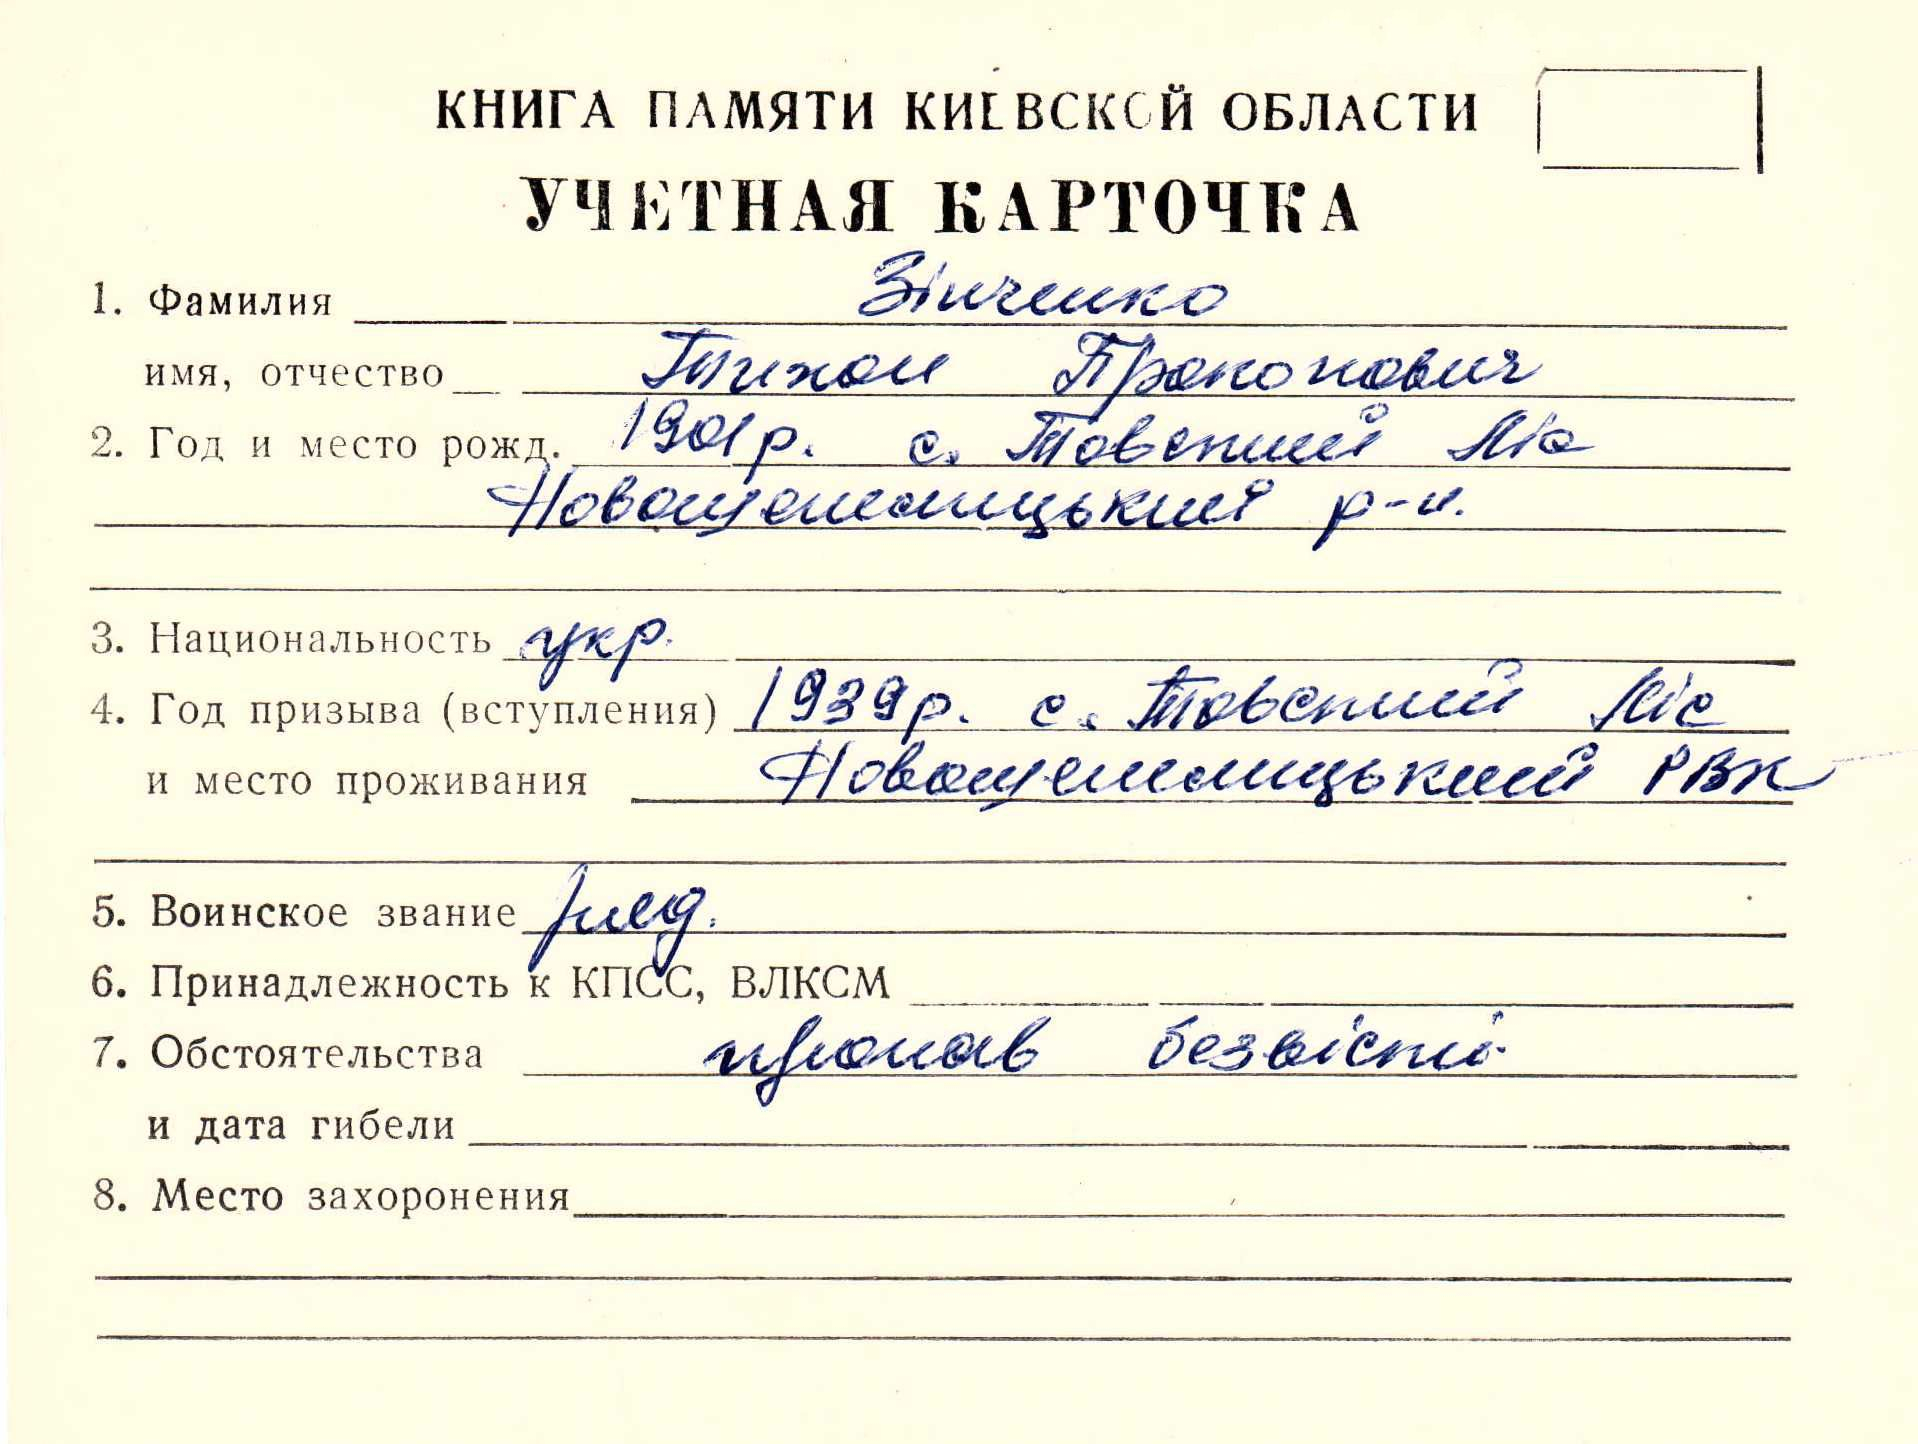 КНИГА ПАМЯТИ КИЕВСКОЙ ОБЛАСТИ
УЧЕТНАЯ КАРТОЧКА
1. Фамилия Зінченко
имя, отчество Тихон Прокопович
2. Год и место рожд. 1901 р. с. Товстий Ліс
Новошепелицький р-н.
3. Национальность укр.
4. Год призыва (вступления) 1939 р. с. Товстий Ліс
и место проживания Новошепелицький РВК
5. Воинское звание ряд.
6. Принадлежность к КПСС, ВЛКСМ
7. Обстоятельства пропав безвісті
и дата гибели
8. Место захоронения